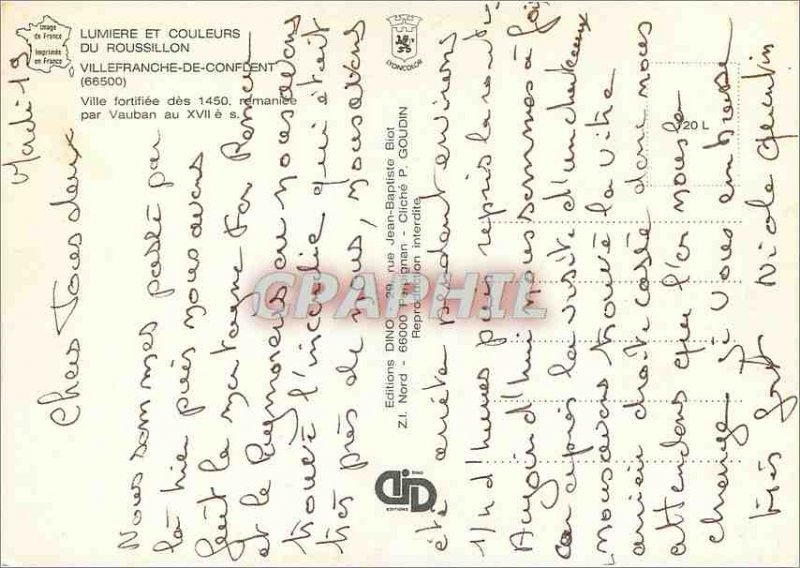 Image
de France
Imprimée
en France
LUMIERE ET COULEURS
DU ROUSSILLON
VILLEFRANCHE-DE-CONFLENT
(66500)
Ville fortifiée dès 1450, remaniée
par Vauban au XVII è s.
LYONCOLOR
120 L
Editions DINO - 29, rue Jean-Baptiste Biot
Z.I. Nord - 66000 Perpignan - Cliché P. GOUDIN
Reproduction interdite
DINO
EDITIONS
CPAPHIL
Mardi 19
Chers Tous deux
Nous sommes passé par
là hier puis nous avons
fait la montagne
et le Puymorens où nous avons
trouvé l'incendie qui était
très près de nous, nous avons
été arrêté pendant environs
1/4 d'heures puis repris la route
Aujourd'hui nous sommes à foix
car après la visite d'un chateaux
nous avons trouvé la vitre
arrière droite cassée donc nous
attendons que l'on nous la
change. Je vous embrasse
très fort Nicole Quentin